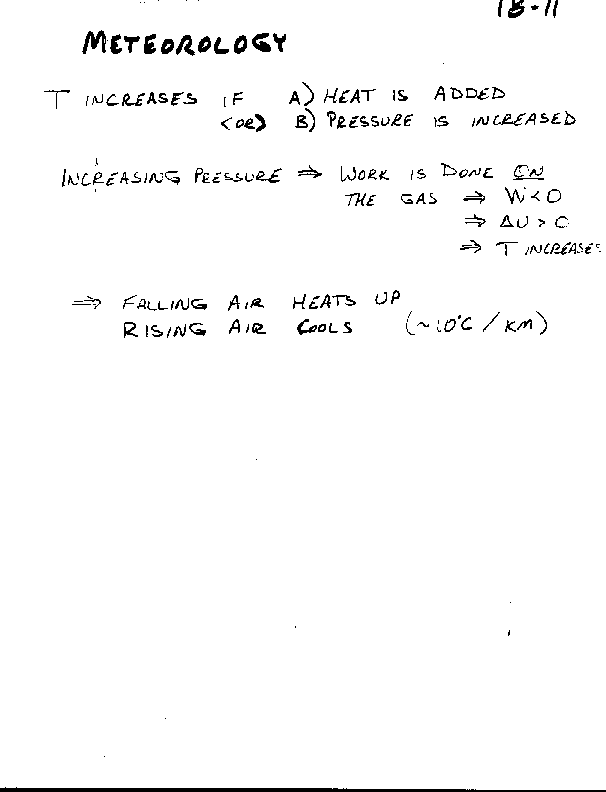 18-11
METEOROLOGY
T INCREASES IF A) HEAT IS ADDED
<OR> B) PRESSURE IS INCREASED
INCREASING PRESSURE ⇒ WORK IS DONE ON
THE GAS ⇒ W<0
⇒ ΔU > 0
⇒ T INCREASES
⇒ FALLING AIR HEATS UP
RISING AIR COOLS (~10°C / KM)